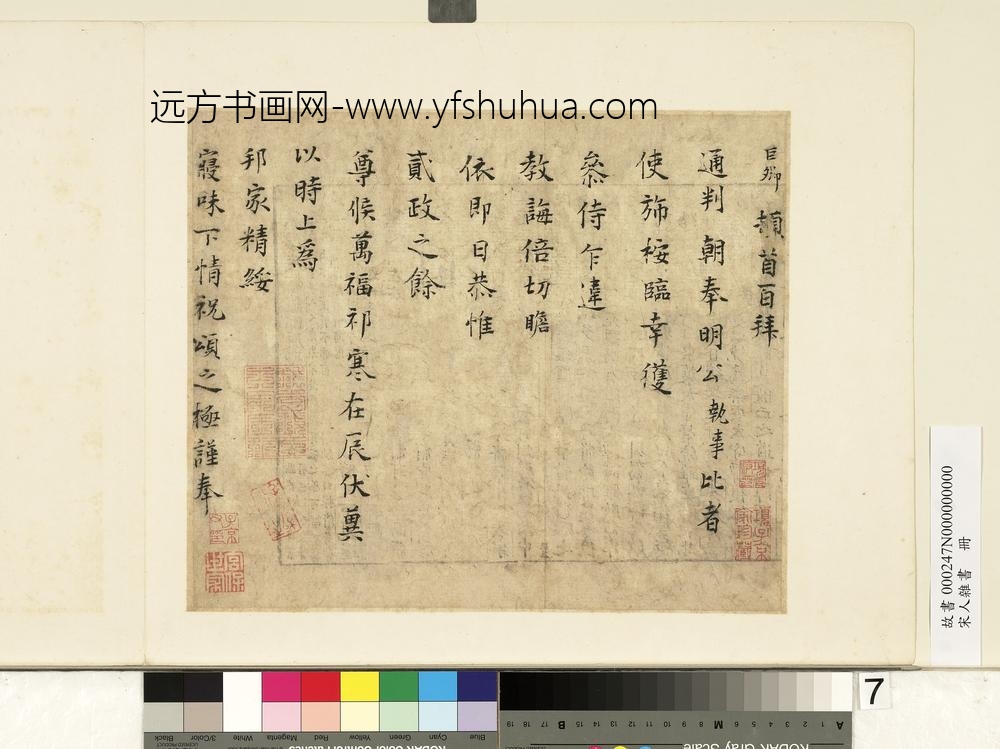 远方书画网-www.yfshuhua.com
巨卿 頓首百拜
通判 朝奉明公 執事比者
使斾按臨幸獲
叅侍乍違
教誨倍切瞻
依即日恭惟
貳政之餘
尊候萬福祁寒在辰伏冀
以時上爲
邦家精綏
寢味下情祝頌之極謹奉
項子京
家珍藏
宮保
世家
故書 000247N000000000
宋人雜書 冊
7
Blue Cyan Green Yellow Red Magenta White 3/Color Black
KODAK Color Control Patches
KODAK Gray Scale
A 1 2 3 4 5 6 M 8 9 10 11 12 13 14 15 B 17 18 19